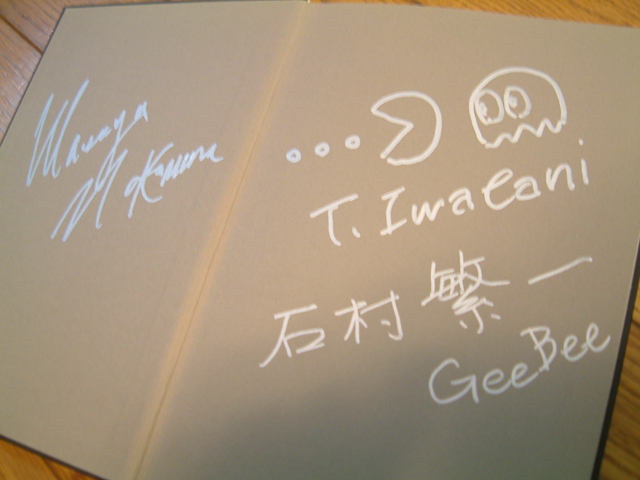 Masaya
Nakamura
T. Iwatani
石村繁一
GeeBee